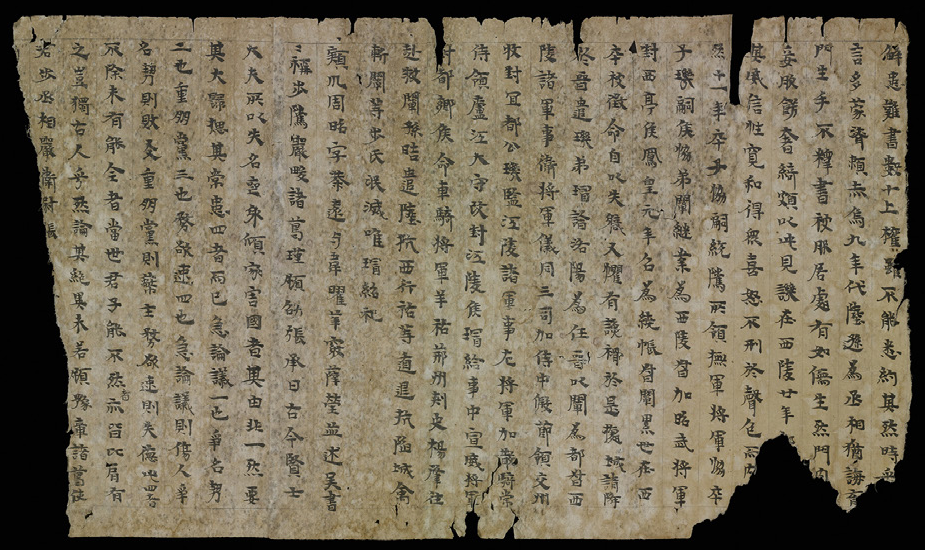 解患難書數十上權雖不能悉納其然時采
言多蒙濟賴赤烏九年代陸遜為丞相猶誨育
門生手不釋書被服居處有如儒生然門內
妾服飾奢綺頗以此見譏在西陵廿年
其威信性寬和得衆喜怒不形於聲色而內
然十一年卒子協嗣統騭所領撫軍將軍協卒
子璣嗣侯協弟闡繼業為西陵督加昭武將軍
封西亭侯鳳皇元年召為繞帳督闡累世在西
本枝徵命自以失職又懼有讒禍於是據城請降
於晉遣璣弟璿詣洛陽為任晉以闡為都督西
陵諸軍事衛將軍儀同三司加侍中假節領交州
牧封宜都公璣監江陵諸軍事左將軍加散騎常
侍領廬江太守改封江陵侯璿給事中宣威將軍
封都鄉侯命車騎將軍羊祜荊州刺史楊肇往
赴救闡孫晧遣陸抗西行祜等遁退抗陷城禽
斬闡等步氏泯滅唯璿紹祀
潁川周昭字恭遠与韋曜華覈薛瑩並述吳書
稱步騭嚴畯諸葛瑾顧劭張承曰古今賢士
大夫所以失名喪身傾家害國者其由非一然要
其大歸總其常患四者而已急論議一也爭名勢
二也重朋黨三也務欲速四也急論議則傷人爭
名勢則敗友重朋黨則蔽主務欲速則失德此四者
不除未有能全者當世君子能不然者亦曰比肩有
之豈獨古人乎然論其絕異未若顧豫章諸葛使
君步丞相嚴衛尉張